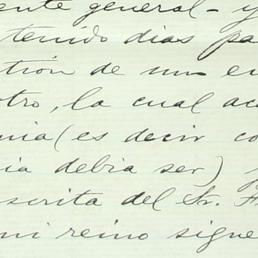 ente general - y
tenido dias pa
tion de un e
otro, la cual ac
nia (es decir co
ia debia ser) y
scrita del Sr. F
mi reino sigue